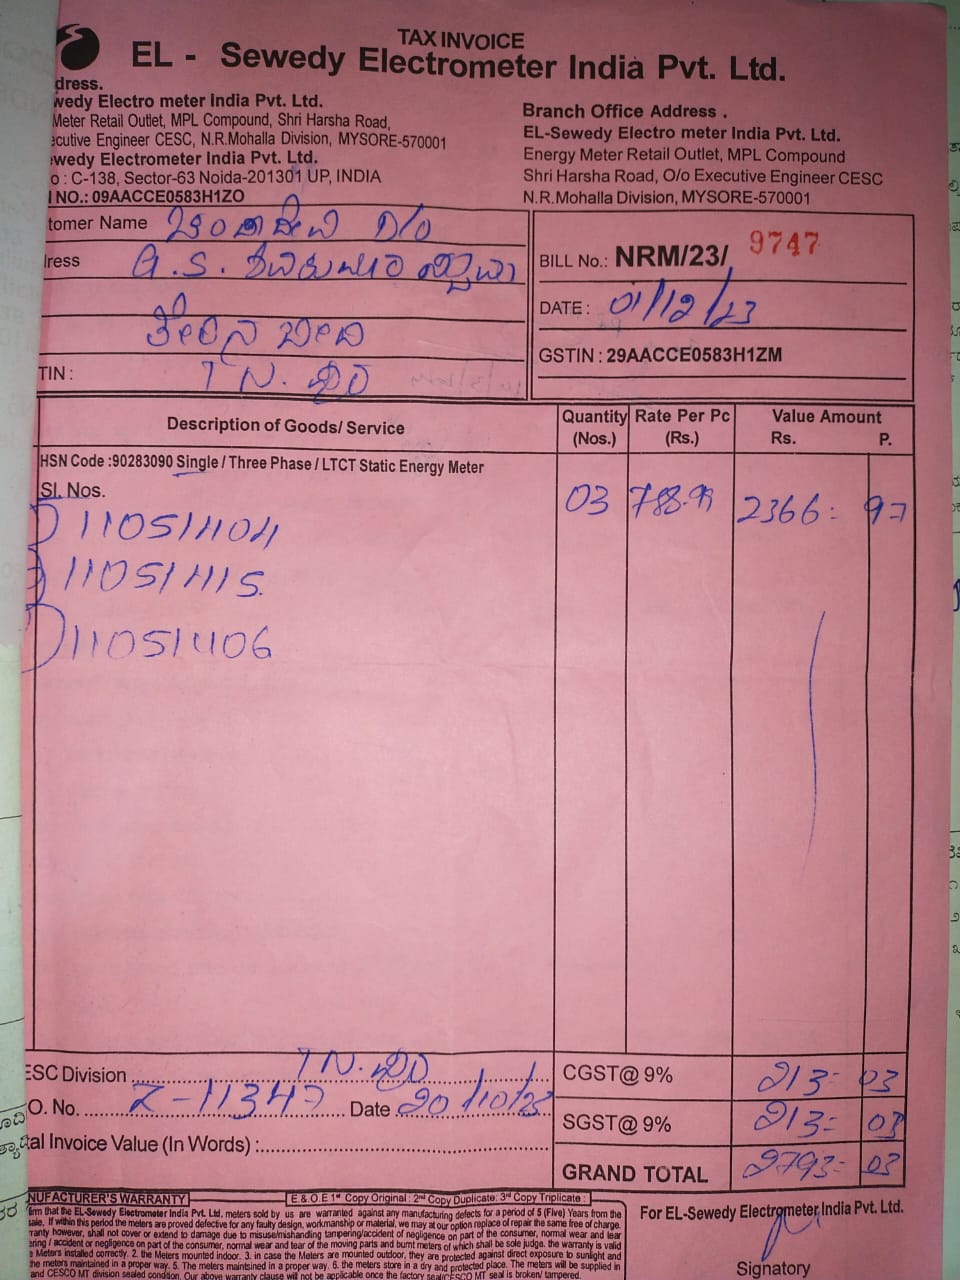 TAX INVOICE
EL - Sewedy Electrometer India Pvt. Ltd.
dress.
wedy Electro meter India Pvt. Ltd.
Meter Retail Outlet, MPL Compound, Shri Harsha Road,
ecutive Engineer CESC, N.R.Mohalla Division, MYSORE-570001
wedy Electrometer India Pvt. Ltd.
o : C-138, Sector-63 Noida-201301 UP, INDIA
I NO.: 09AACCE0583H1ZO
Branch Office Address .
EL-Sewedy Electro meter India Pvt. Ltd.
Energy Meter Retail Outlet, MPL Compound
Shri Harsha Road, O/o Executive Engineer CESC
N.R.Mohalla Division, MYSORE-570001
tomer Name D/o
ress G.S.
TIN : T N. ಪುರ
BILL No.: NRM/23/ 9747
DATE : 01/12/23
GSTIN : 29AACCE0583H1ZM
Description of Goods/ Service Quantity (Nos.) Rate Per Pc (Rs.) Value Amount Rs. P.
HSN Code :90283090 Single / Three Phase / LTCT Static Energy Meter
Sl. Nos. 03 788.99 2366= 97
11051404
11051415
11051406
ESC Division T N. ಪುರ
O. No. Z-11347 Date 20/10/23
tal Invoice Value (In Words) :
CGST@ 9% 213= 03
SGST@ 9% 213= 03
GRAND TOTAL 2793= 03
NUFACTURER'S WARRANTY E. & O.E 1st Copy Original : 2nd Copy Duplicate: 3rd Copy Triplicate :
firm that the EL-Sewedy Electrometer India Pvt. Ltd, meters sold by us are warranted against any manufacturing defects for a period of 5 (Five) Years from the
sale, If within this period the meters are proved defective for any faulty design, workmanship or material, we may at our option replace of repair the same free of charge.
rranty however, shall not cover or extend to damage due to misuse/mishandling tampering/accident of negligence on part of the consumer, normal wear and tear
ering / accident or negligence on part of the consumer, normal wear and tear of the moving parts and burnt meters of which shall be sole judge. the warranty is valid
e Meters installed correctly. 2. the Meters mounted indoor. 3. in case the Meters are mounted outdoor, they are protected against direct exposure to sunlight and
the meters maintained in a proper way. 5. The meters maintsined in a proper way. 6. the meters store in a dry and protected place. The meters will be supplied in
and CESCO MT division sealed condition. Our above warranty clause will not be applicable once the factory seal/CESCO MT seal is broken/ tampered.
For EL-Sewedy Electrometer India Pvt. Ltd.
Signatory